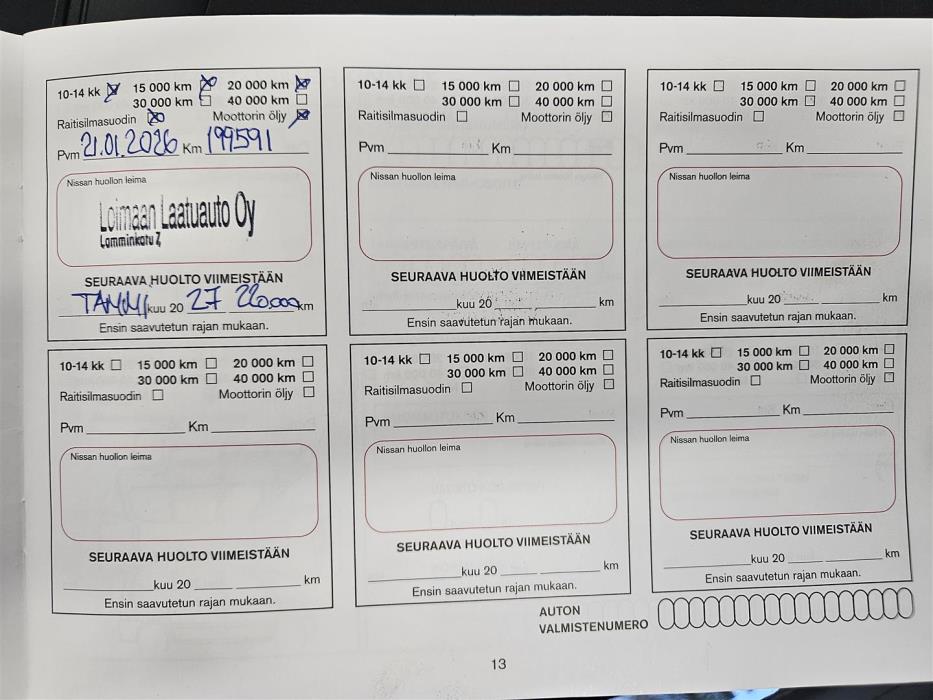 10-14 kk 15 000 km 20 000 km
30 000 km 40 000 km
Raitisilmasuodin Moottorin öljy
Pvm 21.01.2026 Km 199591
Nissan huollon leima
Loimaan Laatuauto Oy
Lamminkatu 7,
SEURAAVA HUOLTO VIIMEISTÄÄN
TAMMI kuu 20 27 220.000 km
Ensin saavutetun rajan mukaan.
10-14 kk 15 000 km 20 000 km
30 000 km 40 000 km
Raitisilmasuodin Moottorin öljy
Pvm Km
Nissan huollon leima
SEURAAVA HUOLTO VIIMEISTÄÄN
kuu 20 km
Ensin saavutetun rajan mukaan.
10-14 kk 15 000 km 20 000 km
30 000 km 40 000 km
Raitisilmasuodin Moottorin öljy
Pvm Km
Nissan huollon leima
SEURAAVA HUOLTO VIIMEISTÄÄN
kuu 20 km
Ensin saavutetun rajan mukaan.
10-14 kk 15 000 km 20 000 km
30 000 km 40 000 km
Raitisilmasuodin Moottorin öljy
Pvm Km
Nissan huollon leima
SEURAAVA HUOLTO VIIMEISTÄÄN
kuu 20 km
Ensin saavutetun rajan mukaan.
10-14 kk 15 000 km 20 000 km
30 000 km 40 000 km
Raitisilmasuodin Moottorin öljy
Pvm Km
Nissan huollon leima
SEURAAVA HUOLTO VIIMEISTÄÄN
kuu 20 km
Ensin saavutetun rajan mukaan.
10-14 kk 15 000 km 20 000 km
30 000 km 40 000 km
Raitisilmasuodin Moottorin öljy
Pvm Km
Nissan huollon leima
SEURAAVA HUOLTO VIIMEISTÄÄN
kuu 20 km
Ensin saavutetun rajan mukaan.
AUTON
VALMISTENUMERO
13